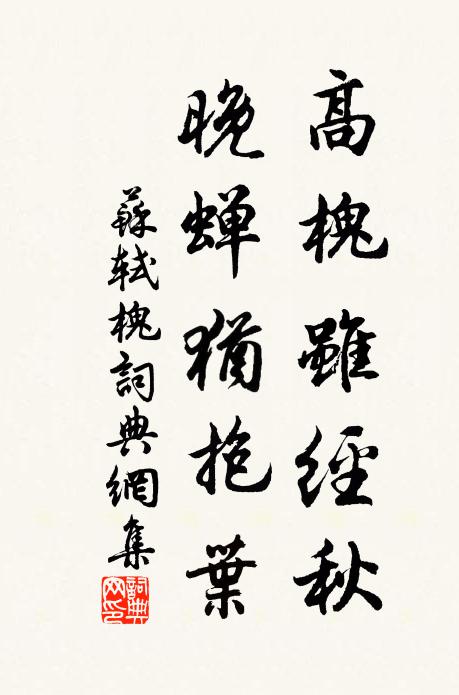 高槐雖經秋
晚蝉猶抱葉
蘇軾槐詞典網集
詞典网印